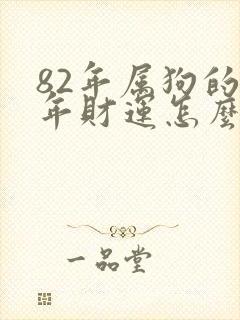 82年属狗的
年财運怎麽
一品堂